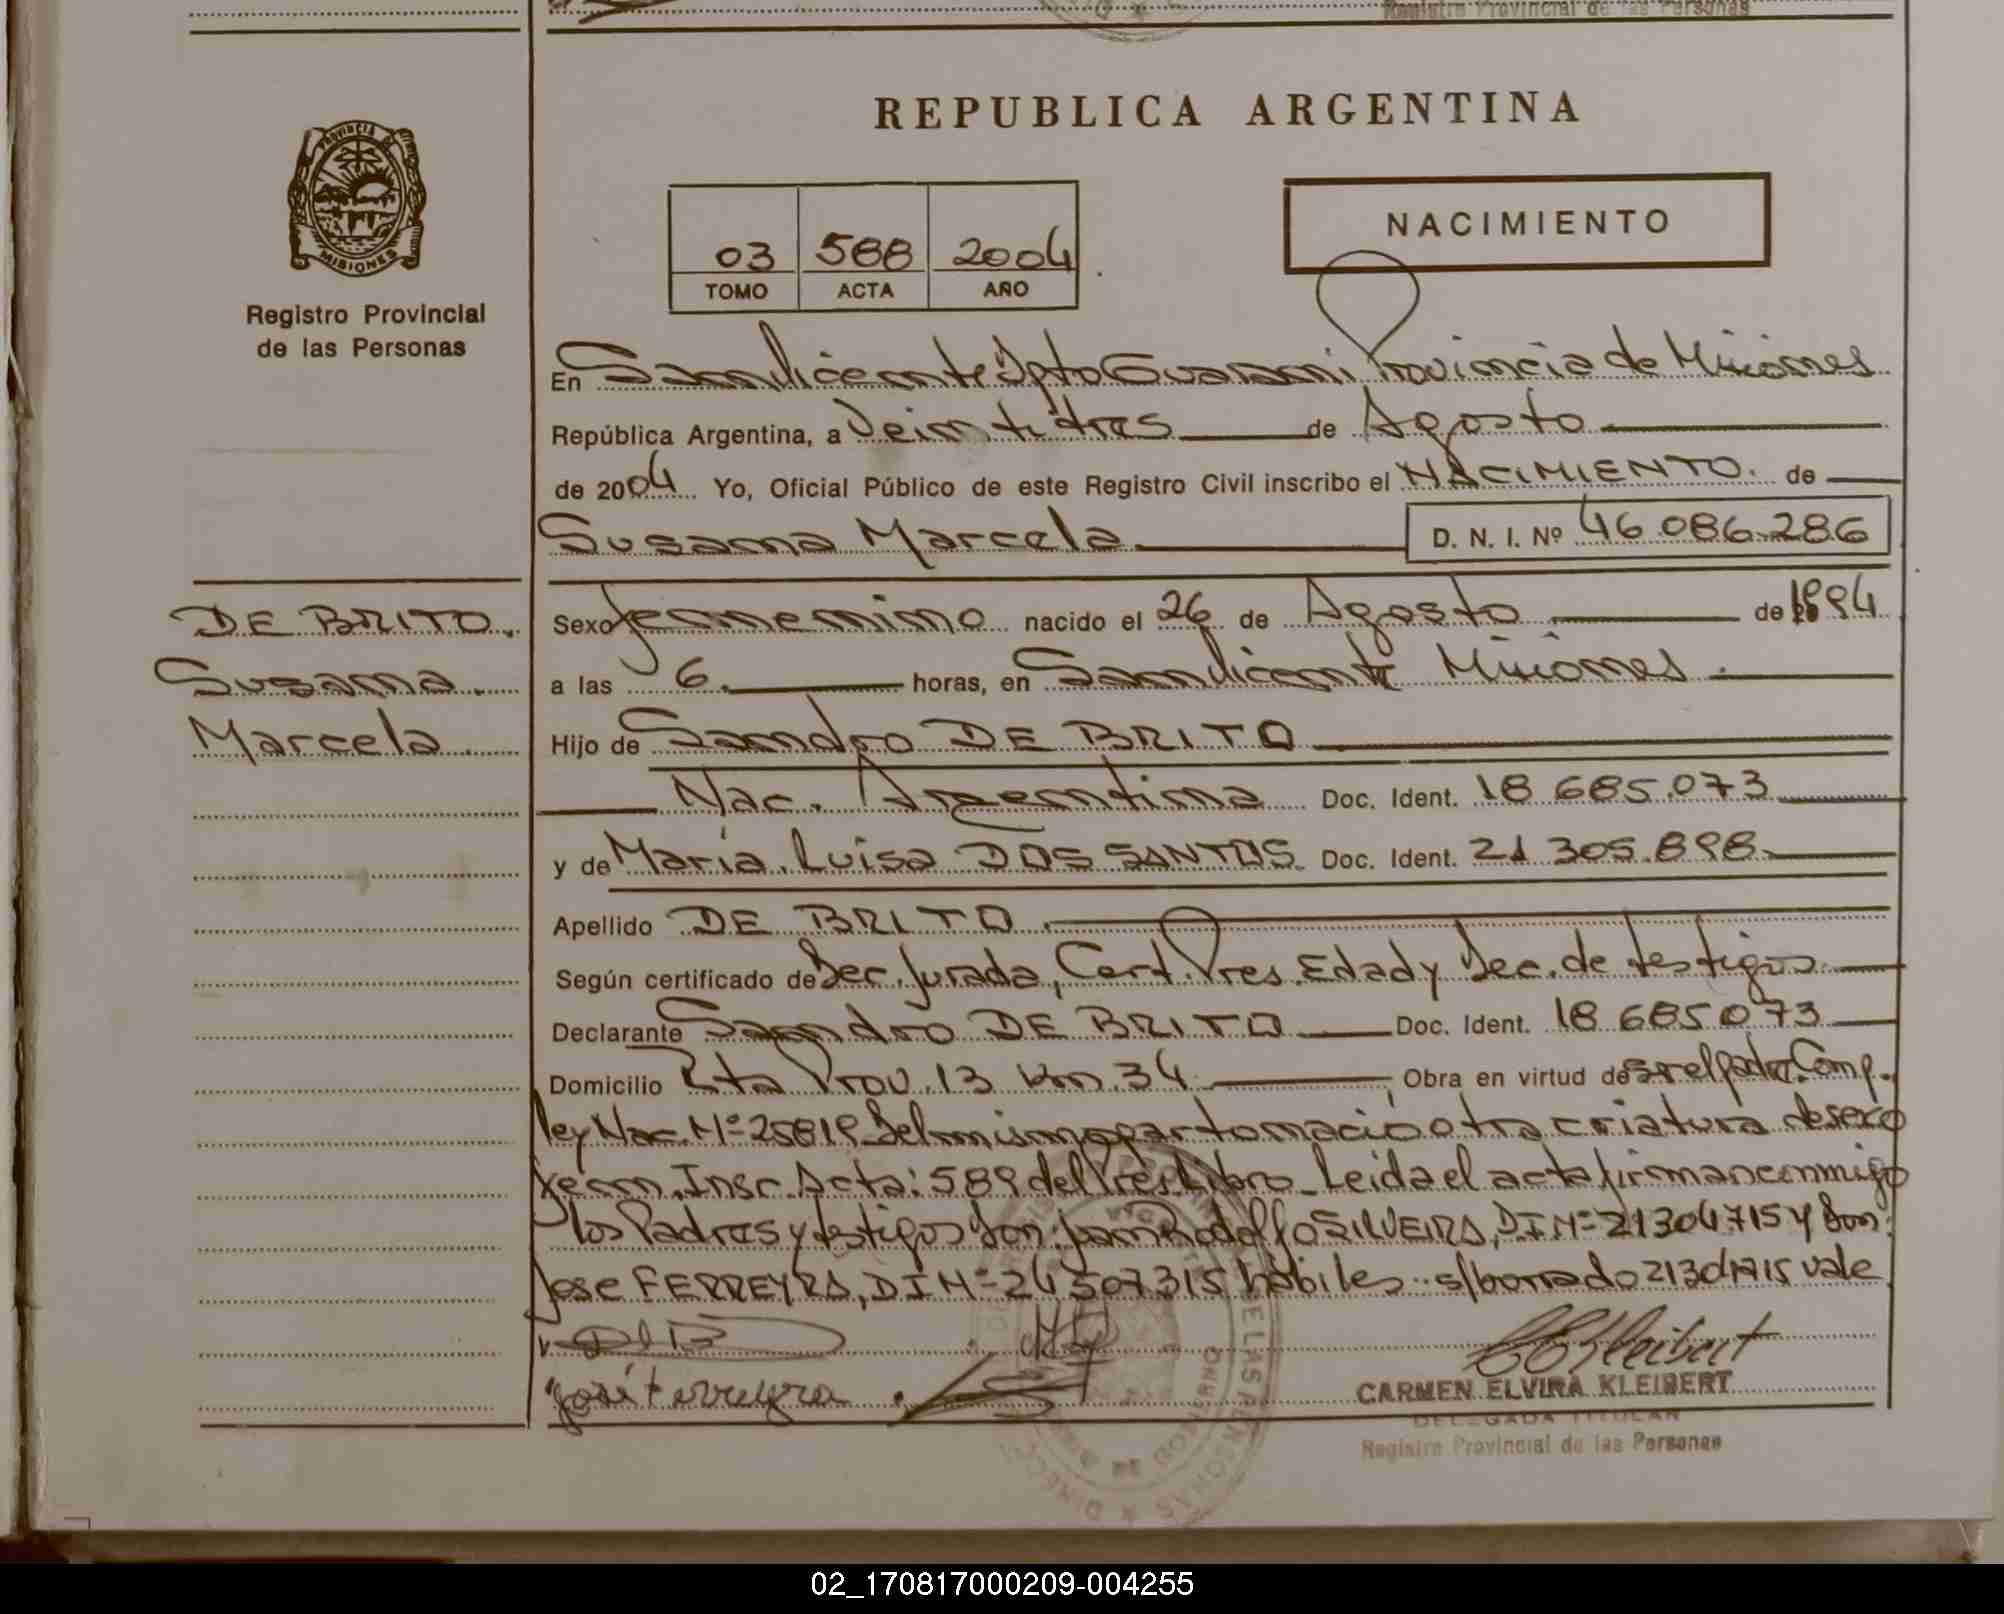 Registro Provincial de las Personas
REPUBLICA ARGENTINA
PROVINCIA DE
MISIONES
Registro Provincial
de las Personas
03 588 2004
TOMO ACTA AÑO
NACIMIENTO
En San Vicente Dpto Guarani Provincia de Misiones
República Argentina, a Veintitres de Agosto
de 2004 Yo, Oficial Público de este Registro Civil inscribo el NACIMIENTO. de
Susana Marcela D. N. I. Nº 46.086.286
DE BRITO.
Susana
Marcela
Sexo femenino nacido el 26 de Agosto de 1994
a las 6 horas, en San Vicente Misiones
Hijo de Sandro DE BRITO
Nac. Argentina Doc. Ident. 18 685.073
y de María Luisa DOS SANTOS Doc. Ident. 21 305.898
Apellido DE BRITO
Según certificado de Dec. Jurada, Cert. Pres. Edad y Dec. de testigos
Declarante Sandro DE BRITO Doc. Ident. 18 685073
Domicilio Rta Prov. 13 Km. 34 Obra en virtud de ser el padre. Comp.
ley Nac. Nº 25819 Del mismo parto nació otra criatura de sexo
fem. Insc. Acta: 589 del Pres. Libro. Leida el acta firman conmigo
los Padres y testigos Don: Rodolfo SILVEIRA, D.I Nº 21304715 y Don:
Jose FERREYRA, D I Nº 24507315 hábiles. s/borrado 21304715 vale
José Ferreyra
CARMEN ELVIRA KLEIBERT
DELEGADA TITULAR
Registro Provincial de las Personas
02_170817000209-004255